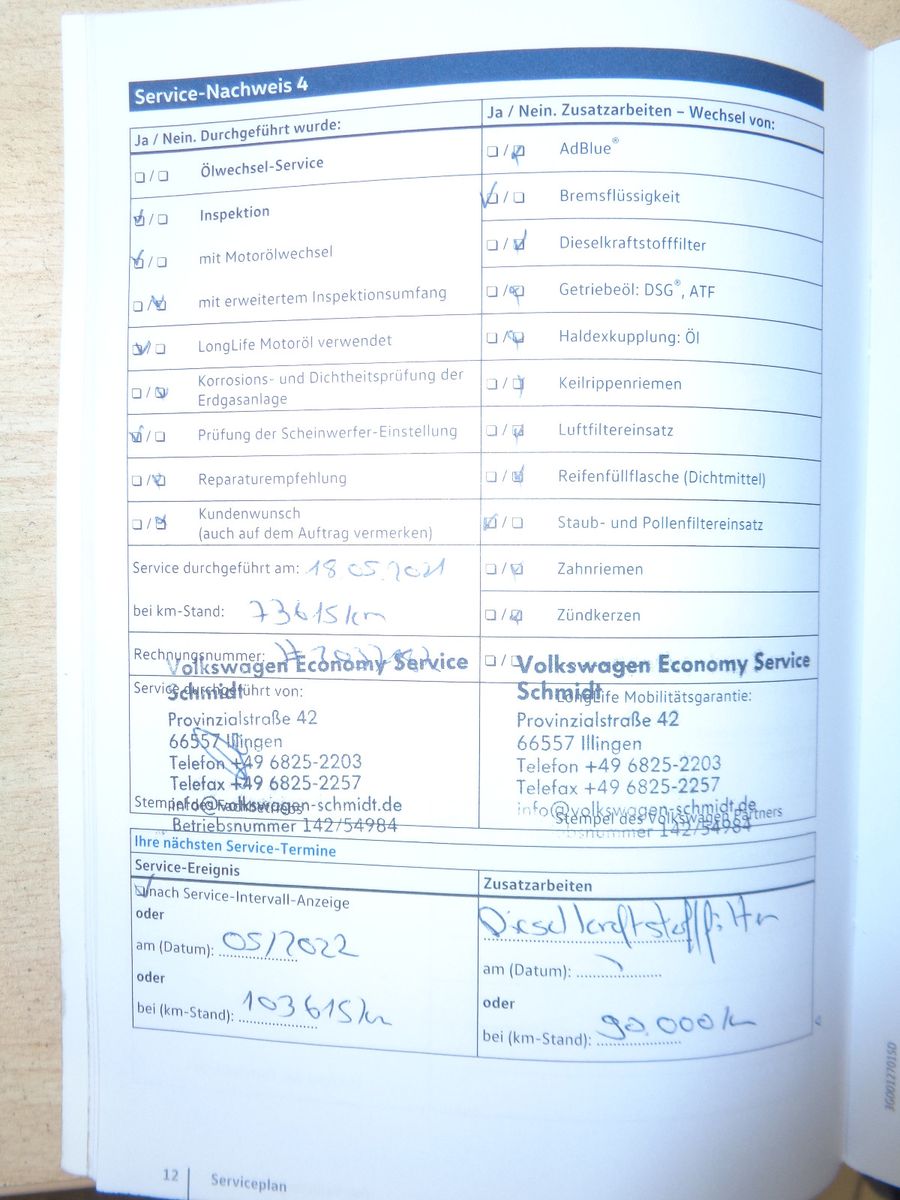 Service-Nachweis 4
Ja / Nein. Durchgeführt wurde:
Ölwechsel-Service
Inspektion
mit Motorölwechsel
mit erweitertem Inspektionsumfang
LongLife Motoröl verwendet
Korrosions- und Dichtheitsprüfung der
Erdgasanlage
Prüfung der Scheinwerfer-Einstellung
Reparaturempfehlung
Kundenwunsch
(auch auf dem Auftrag vermerken)
Service durchgeführt am: 18.05.2021
bei km-Stand: 73615 km
Rechnungsnummer:
Service durchgeführt von:
Volkswagen Economy Service
Schmidt
Provinzialstraße 42
66557 Illingen
Telefon +49 6825-2203
Telefax +49 6825-2257
info@volkswagen-schmidt.de
Betriebsnummer 142/54984
Ja / Nein. Zusatzarbeiten – Wechsel von:
AdBlue®
Bremsflüssigkeit
Dieselkraftstofffilter
Getriebeöl: DSG®, ATF
Haldexkupplung: Öl
Keilrippenriemen
Luftfiltereinsatz
Reifenfüllflasche (Dichtmittel)
Staub- und Pollenfiltereinsatz
Zahnriemen
Zündkerzen
LongLife Mobilitätsgarantie:
Volkswagen Economy Service
Schmidt
Provinzialstraße 42
66557 Illingen
Telefon +49 6825-2203
Telefax +49 6825-2257
info@volkswagen-schmidt.de
Stempel des Volkswagen Partners
Ihre nächsten Service-Termine
Service-Ereignis
nach Service-Intervall-Anzeige
oder
am (Datum): 05/2022
oder
bei (km-Stand): 103615 km
Zusatzarbeiten
Dieselkraftstofffilter
am (Datum):
oder
bei (km-Stand): 90.000 km
12
Serviceplan
3G0012701SD